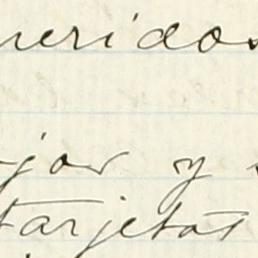 ueridos
jor y
tarjetas